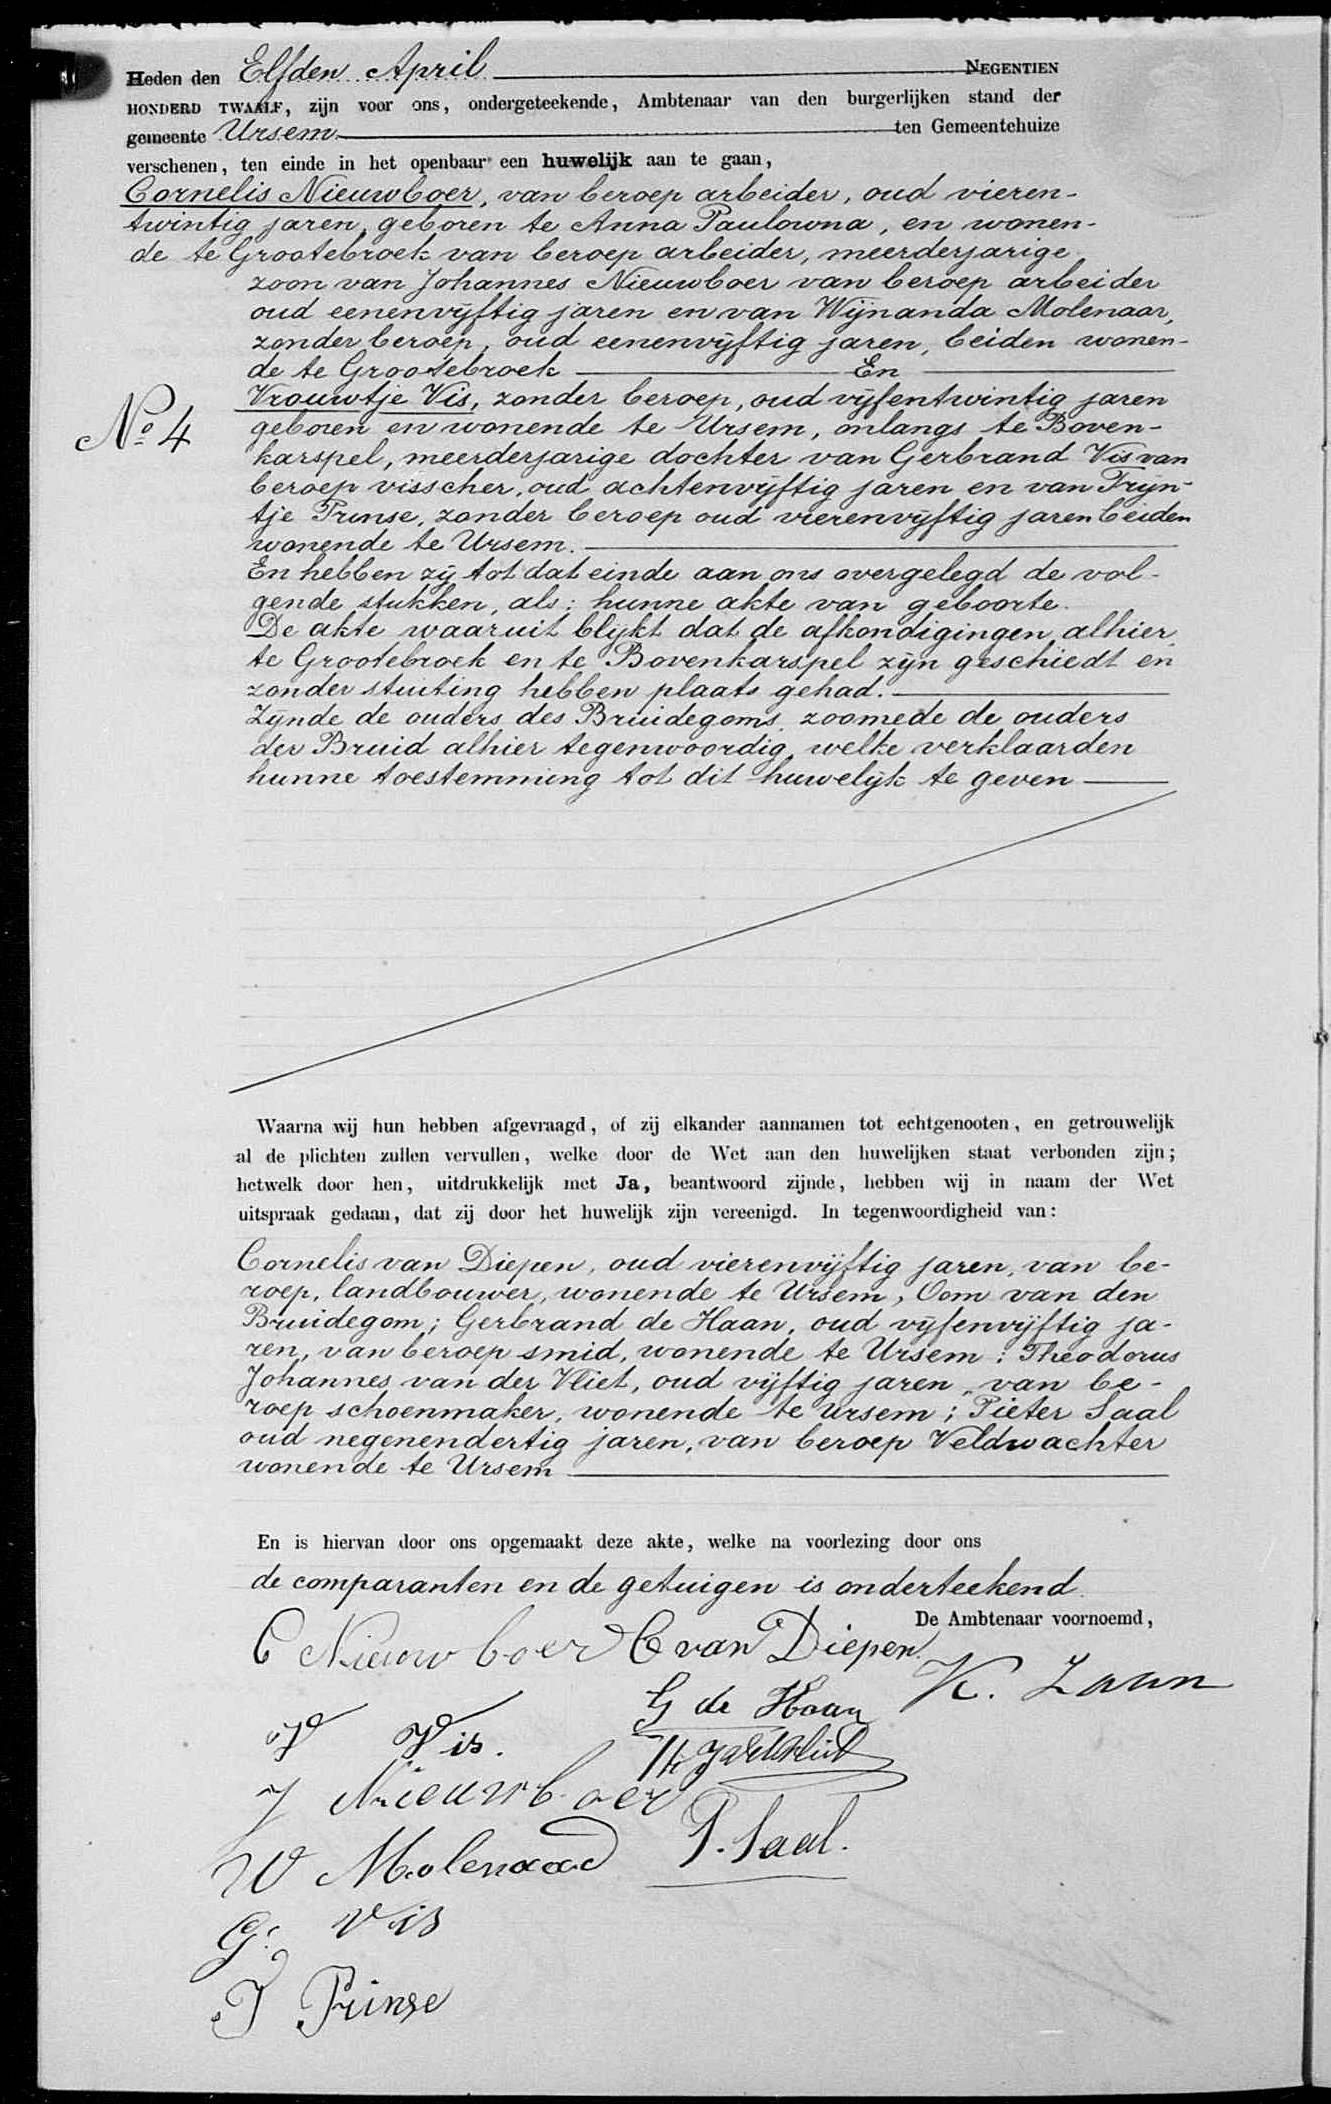 Heden den Elfden April NEGENTIEN
HONDERD TWAALF, zijn voor ons, ondergeteekende, Ambtenaar van den burgerlijken stand der
gemeente Ursem ten Gemeentehuize
verschenen, ten einde in het openbaar een huwelijk aan te gaan,
Cornelis Nieuwboer, van beroep arbeider, oud vieren-
twintig jaren, geboren te Anna Paulowna, en wonen-
de te Grootebroek van beroep arbeider, meerderjarige
zoon van Johannes Nieuwboer van beroep arbeider
oud eenenvijftig jaren en van Wijnanda Molenaar,
zonder beroep, oud eenenvijftig jaren, beiden wonen-
de te Grootebroek En
Vrouwtje Vis, zonder beroep, oud vijfentwintig jaren
No 4
geboren en wonende te Ursem, onlangs te Boven-
karspel, meerderjarige dochter van Gerbrand Vis van
beroep visscher, oud achtenvijftig jaren en van Trijn-
tje Prinse, zonder beroep oud vierenvijftig jaren beiden
wonende te Ursem.
En hebben zij tot dat einde aan ons overgelegd de vol-
gende stukken, als: hunne akte van geboorte.
De akte waaruit blijkt dat de afkondigingen alhier,
te Grootebroek en te Bovenkarspel zijn geschiedt en
zonder stuiting hebben plaats gehad.
Zijnde de ouders des Bruidegoms, zoomede de ouders
der Bruid alhier tegenwoordig, welke verklaarden
hunne toestemming tot dit huwelijk te geven
Waarna wij hun hebben afgevraagd, of zij elkander aannamen tot echtgenooten, en getrouwelijk
al de plichten zullen vervullen, welke door de Wet aan den huwelijken staat verbonden zijn;
hetwelk door hen, uitdrukkelijk met Ja, beantwoord zijnde, hebben wij in naam der Wet
uitspraak gedaan, dat zij door het huwelijk zijn vereenigd. In tegenwoordigheid van:
Cornelis van Diepen, oud vierenvijftig jaren, van be-
roep, landbouwer, wonende te Ursem, Oom van den
Bruidegom; Gerbrand de Haan, oud vijfenvijftig ja-
ren, van beroep smid, wonende te Ursem; Theodorus
Johannes van der Vliet, oud vijftig jaren, van be-
roep schoenmaker, wonende te Ursem; Pieter Saal
oud negenendertig jaren, van beroep Veldwachter
wonende te Ursem
En is hiervan door ons opgemaakt deze akte, welke na voorlezing door ons
de comparanten en de getuigen is onderteekend.
De Ambtenaar voornoemd,
C Nieuwboer C van Diepen
K. Zaan
G de Haan
V Vis.
J Nieuwboer
P. Saal.
W Molenaar
G. Vis
T Prinse